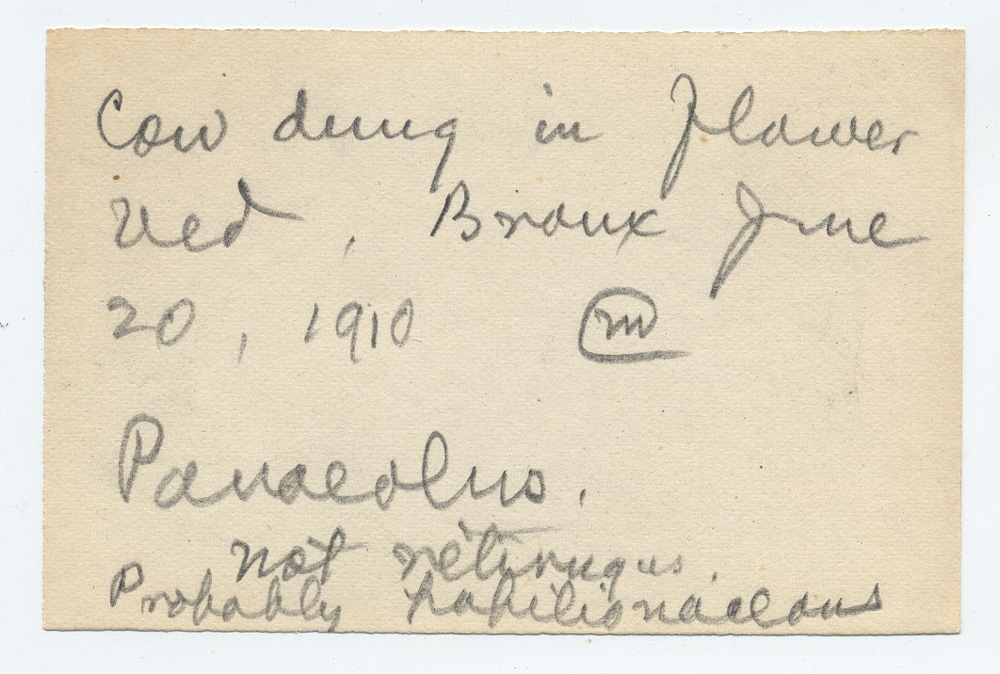 Cow dung in flower
bed, Bronx June
20, 1910 m
Panaeolus.
not retirugus.
Probably papilionaceous